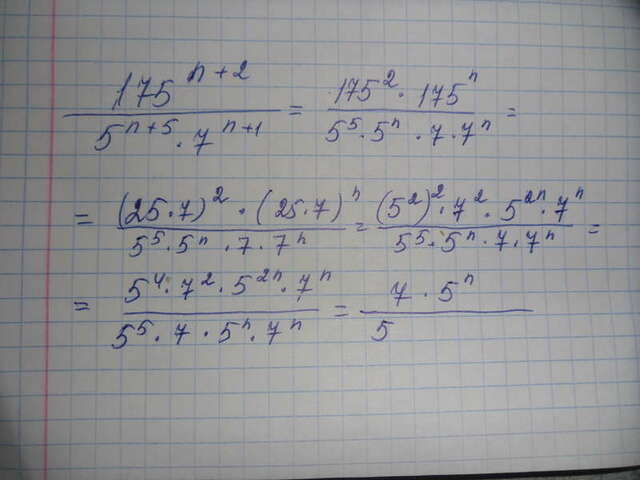 175^(n+2) / (5^(n+5) · 7^(n+1)) = (175^2 · 175^n) / (5^5 · 5^n · 7 · 7^n) =
= ((25·7)^2 · (25·7)^n) / (5^5 · 5^n · 7 · 7^n) = ((5^2)^2 · 7^2 · 5^(2n) · 7^n) / (5^5 · 5^n · 7 · 7^n) =
= (5^4 · 7^2 · 5^(2n) · 7^n) / (5^5 · 7 · 5^n · 7^n) = (7 · 5^n) / 5